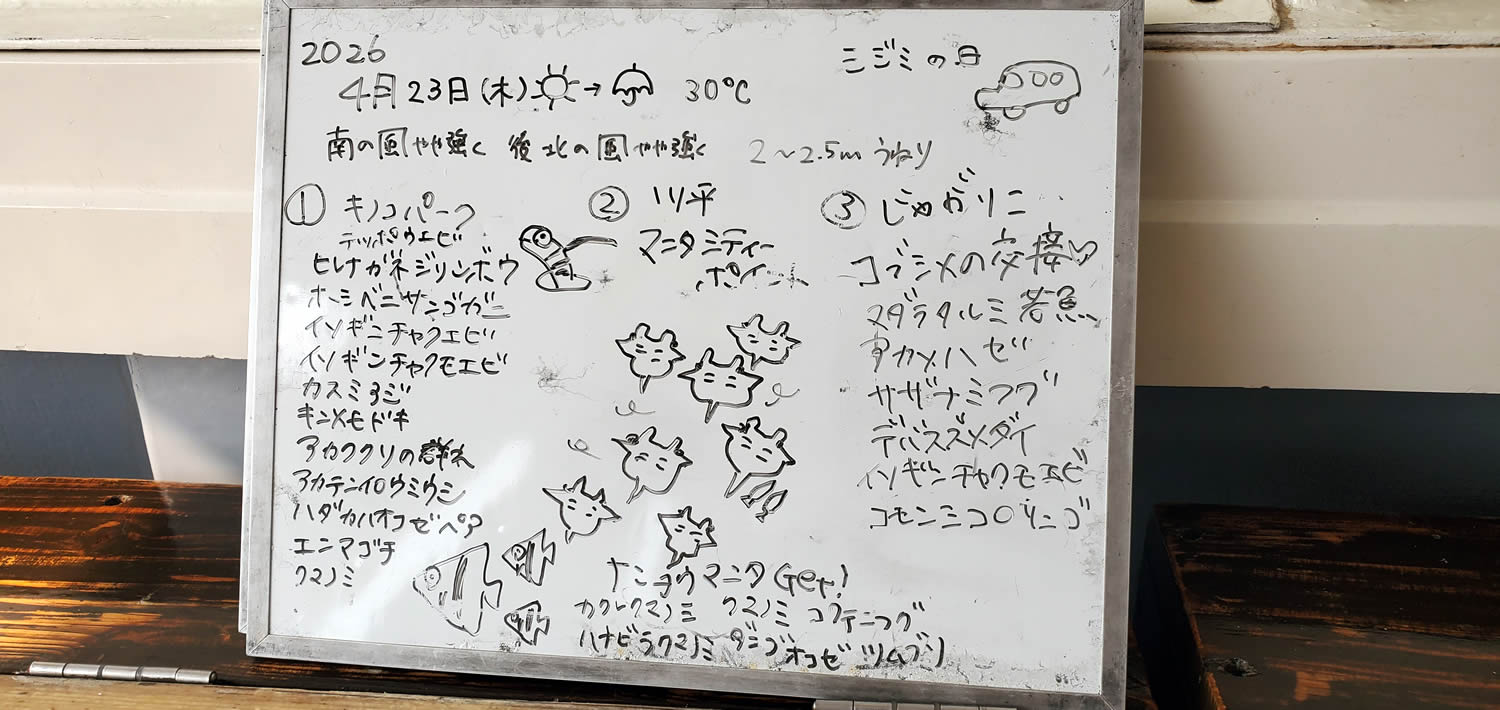 2026
シジミの日
4月23日(木) → 30℃
南の風やや強く 後北の風やや強く 2〜2.5mうねり
① キノコパーク
テッポウエビ
ヒレナガネジリンボウ
ホーシベニサンゴガニ
イソギンチャクエビ
イソギンチャクモエビ
カスミアジ
キンメモドキ
アカククリの群れ
アカテンイロウミウシ
ハダカハオコゼペア
エンマゴチ
クマノミ
② 川平
マンタシティー
ポイント
ナンヨウマンタGet!
カクレクマノミ クマノミ コクテンフグ
ハナビラクマノミ ダンゴオコゼ ツムブリ
③ じゃがりこ
コブシメの交接♡
マダラタルミ若魚
アカメハゼ
サザナミフグ
デバスズメダイ
イソギンチャクモエビ
コモンシコロサンゴ